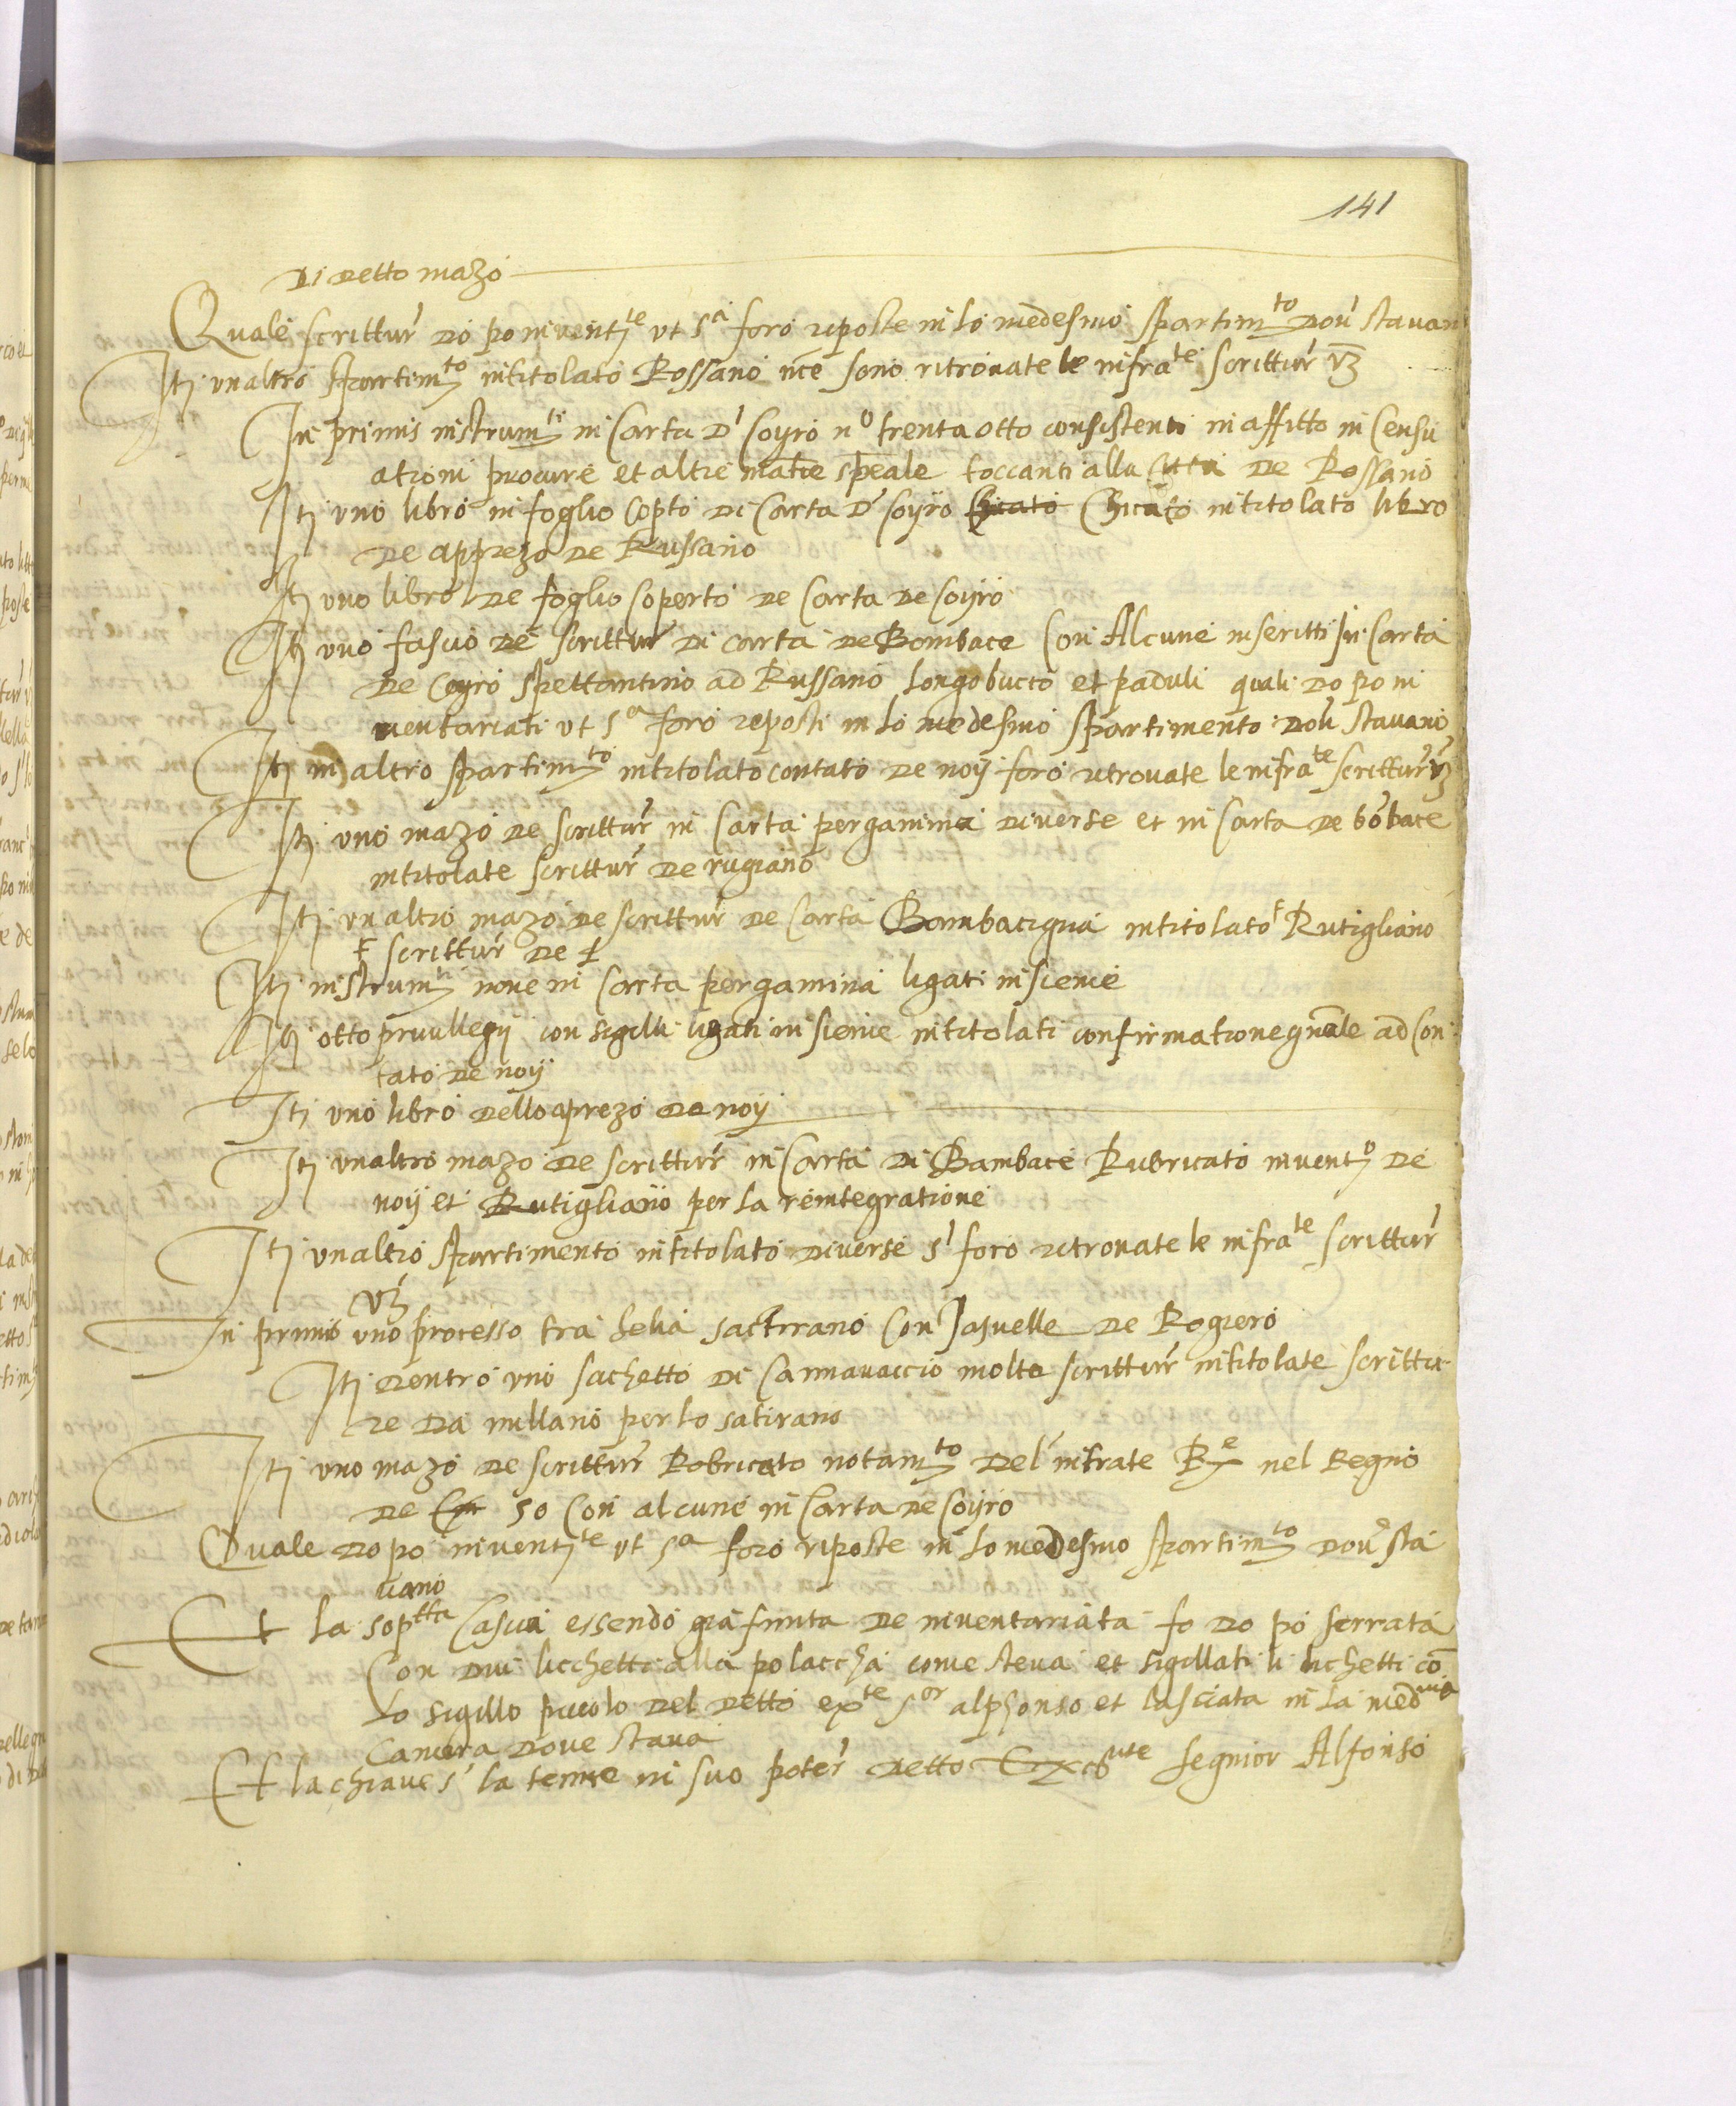 141
Di detto mazo
Quale scrittur' do po inventte ut sa foro riposte in lo medesmo spartimto dov' stavan
Iti un altro spartimto intitolato Rossano nce sono ritrovate le infrate scrittur' vz
In primis instrumti in Carta d' Coyro no trenta otto consistenti in affitto in Censu
ationi procure et altre matie speale toccanti alla Citta de Rossano
Iti uno libro in foglio Copto di Carta d' Coyro Chicato intitolato libro
de apprezo de Russano
Iti uno libro de foglio Coperto de Carta de Coyro
Iti uno fascio de scrittur' di carta de Bombace Con Alcune inscritti in Carta
de Coyro spettantino ad Russano Longobucco et paduli quali do po in
ventariati ut sa foro reposti in lo medesmo spartimento dov' stavano
Iti in altro spartimto intitolato contato de noij foro ritrovate le infrate scrittur' vz
Iti uno mazo de scrittur' in Carta pergamina diverse et in Carta de bobace
intitolate scrittur' de rugiano
Iti un altro mazo de scrittur' de Carta Bombacigna intitolato Rutigliano
scrittur' de
Iti instrumti nove in Carta pergamina ligati insieme
Iti otto privilegij con sigilli ligati insieme intitolati confirmatione gnale ad Con
tato de noij
Iti uno libro dello aprezo de noij
Iti un altro mazo de scrittur' in Carta di Bambace Rubricato inventro de
noij et Rutigliano per la reintegratione
Iti un altro spartimento intitolato diverse s' foro ritrovate le infrate scrittur'
vz
In primis uno processo tra helia sactirano Con Jasuelle de Rogiero
Iti dentro uno sachetto di Cannavaccio molte scrittur' intitolate scrittu
re da millano per lo satirano
Iti uno mazo de scrittur' Robricato notamto del' intrate Re nel Regno
de so Con alcune in Carta de Coyro
Quale do po inventte ut sa foro riposte in lo medesmo spartimto dov' sta
vano
Et la soptta Cascia essendo gia finita de inventariata fo do po serrata
Con dui licchetti alla polaccha come steva et sigillati li lichetti co
lo sigillo piccolo del detto exte sor alphonso et lasciata in la medma
Camera dove stava
Et la chiave s' la tenne in suo poter' detto segnior Alfonso